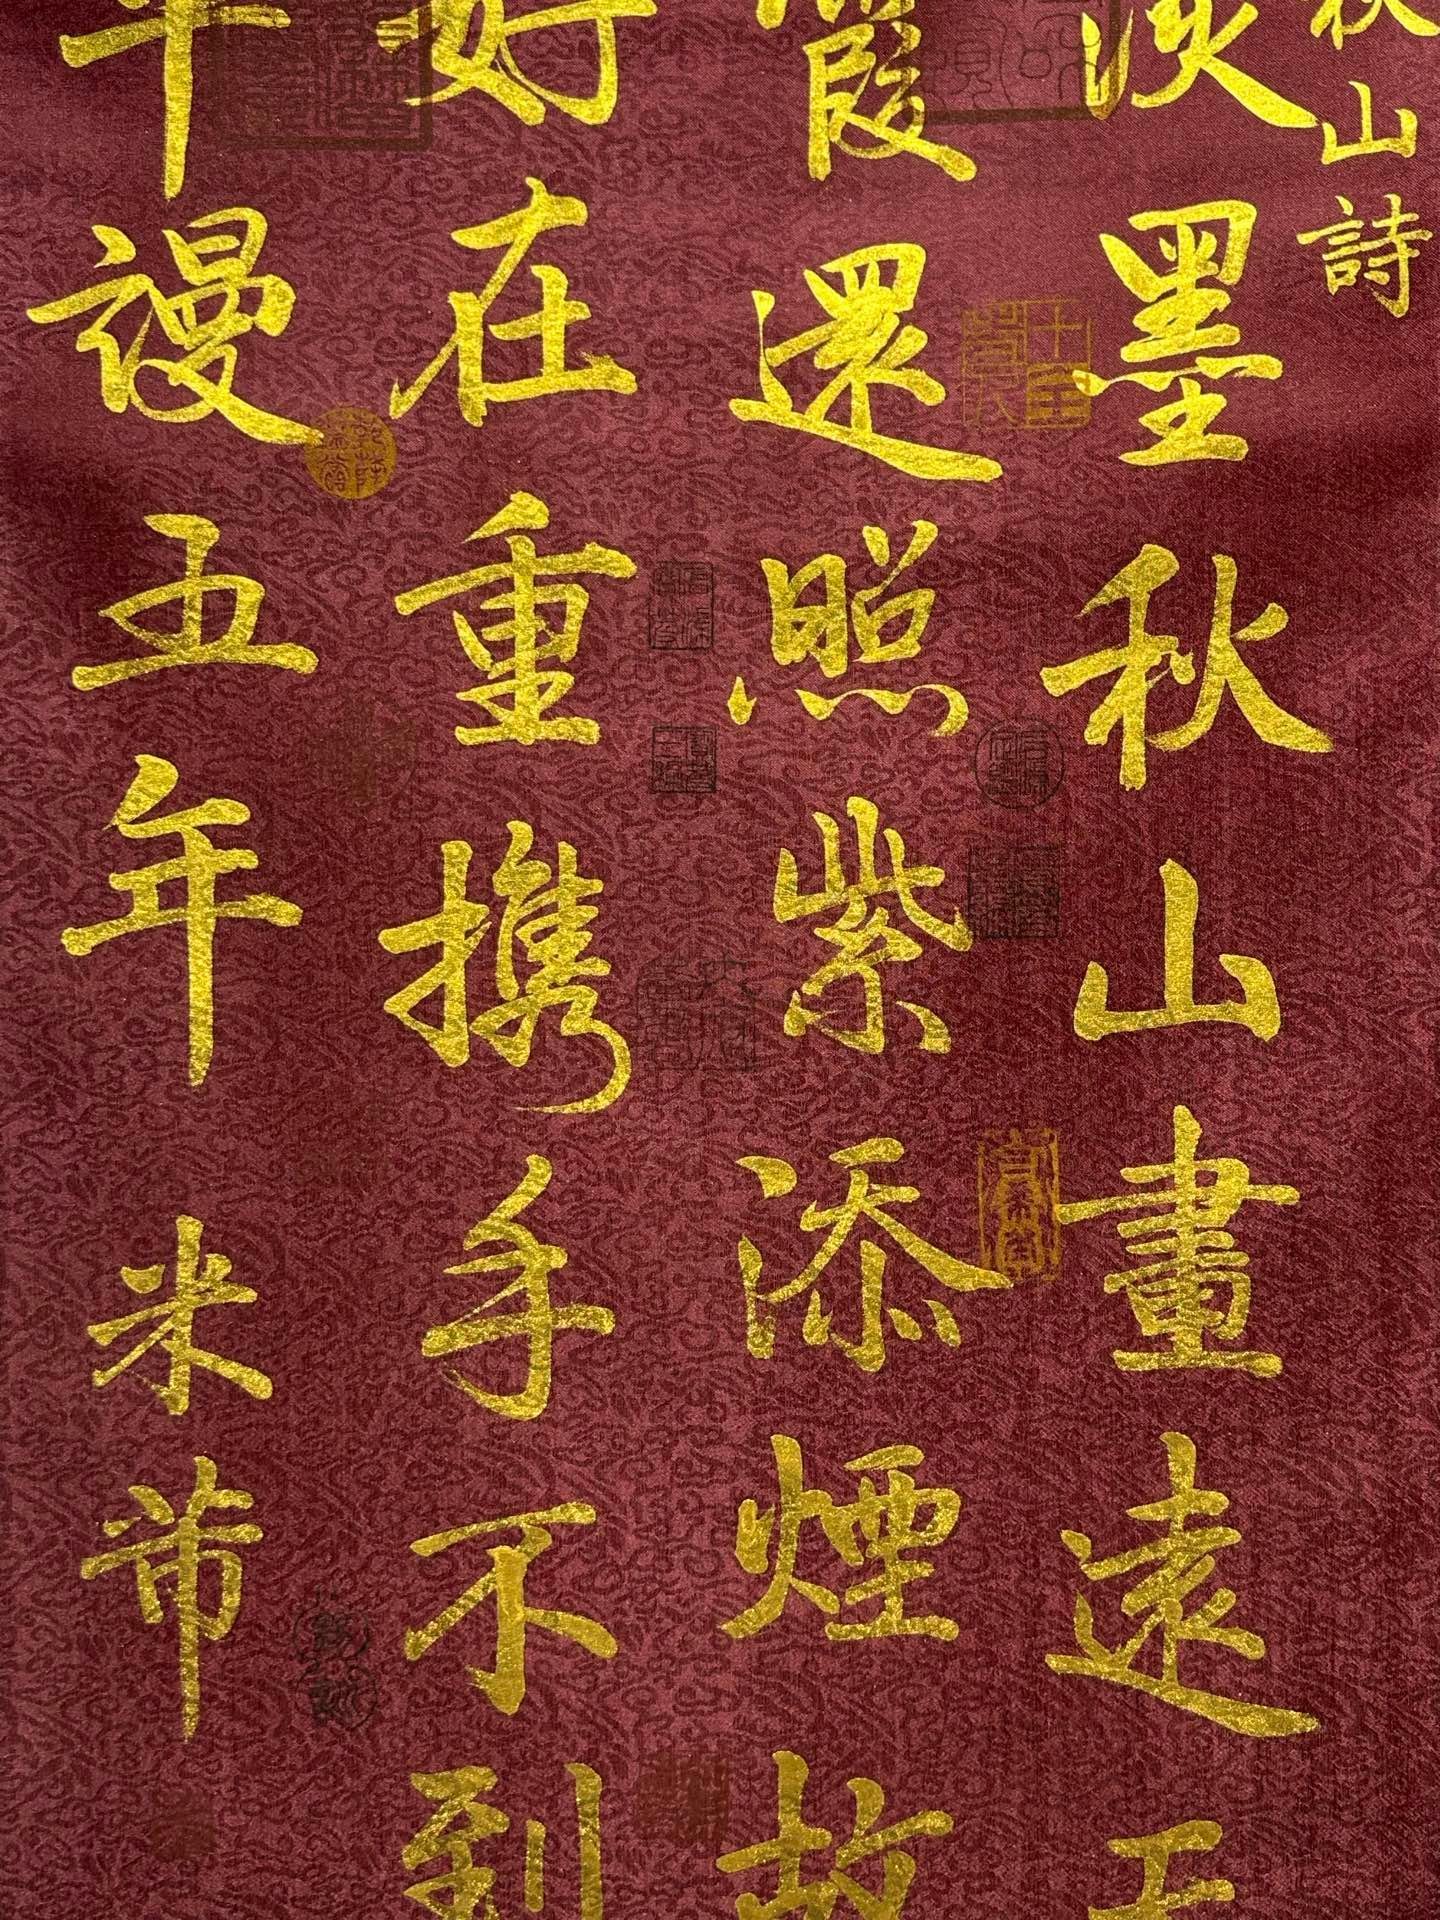 秋山詩
淡墨秋山畫遠天
霞還照紫添煙故
好在重携手不到
平謾五年 米芾